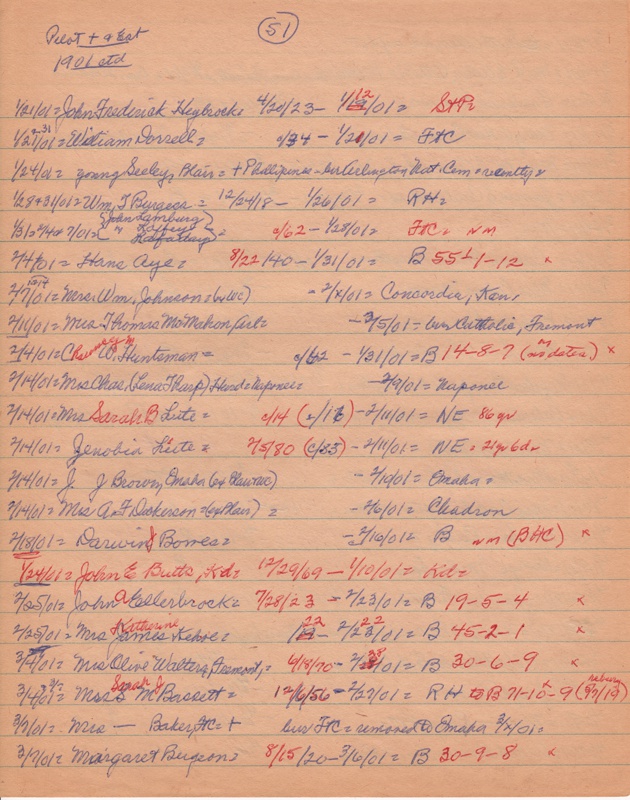 51
Pilot +
1901 ctd
1/21/01 = John Frederick Heybrock 4/20/23 - 1/12/01 = StP=
1/21/01 = William Dorrell = c/34 - 1/21/01 = FtC
1/24/01 = young Seeley, Blair = + Phillipines - bur Arlington Natl. Cem = recently
1/28+31/01 = Wm. T Burgess = 12/24/18 - 1/26/01 = RH =
(John Lamburg)
c/62 - 1/28/01 = FtC = NM
2/4/01 = Hans Aye = 8/22/40 - 1/31/01 = B 55-1-12 x
2/7/01 = Mrs. Wm. Johnson = - 2/x/01 = Concordia, Kan,
2/11/01 = Mrs Thomas McMahon, Arl = - 2/5/01 = bur Catholic, Fremont
2/14/01 = C W. Huntsman = c/62 - 1/31/01 = B 14-8-7 (no dates) x
2/14/01 = Mrs Chas, (Lena Tharp) Hurd = Naponee = - 2/9/01 = Naponee
2/14/01 = Mrs Sarah B Lute = c/14 (c/16) - 2/11/01 = NE 86 yr
2/14/01 = Zenobia Lute = 2/5/80 (c/85) - 2/11/01 = NE = 21yr 6da
2/14/01 = J. J Brown, Omaha - 2/10/01 = Omaha =
2/14/01 = Mrs A. F Dickerson = (ex Blair) = - 2/6/01 = Chadron
2/18/01 = Darwin J Bowes = - 2/16/01 = B NM (BHC) x
1/24/01 = John E Butts, Kd = 12/29/69 - 1/10/01 = Kd =
2/25/01 = John A Ellerbrock = 7/28/23 - 2/23/01 = B 19-5-4 x
Katherine
2/25/01 = Mrs James Kehoe = 22 - 2/22/01 = B 45-2-1 x
3/4/01 = Mrs Olive Walters, Fremont, = 4/18/70 - 2/28/01 = B 30-6-9 x
Sarah J reburg
3/4/01 = Mrs M Bassett = 12/6/56 - 2/27/01 = RH to B 71-10-9
3/7/01 = Mrs — Baker, FtC = + bur FtC = removed to Omaha 3/2/01 =
3/7/01 = Margaret Burgeon = 8/15/20 - 3/6/01 = B 30-9-8 x